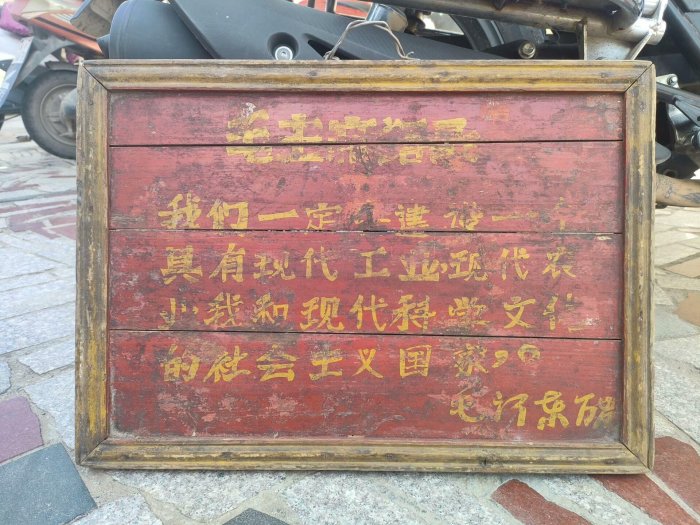 毛主席语录
我们一定要建设一个
具有现代工业现代农
业我和现代科学文化
的社会主义国家
毛泽东